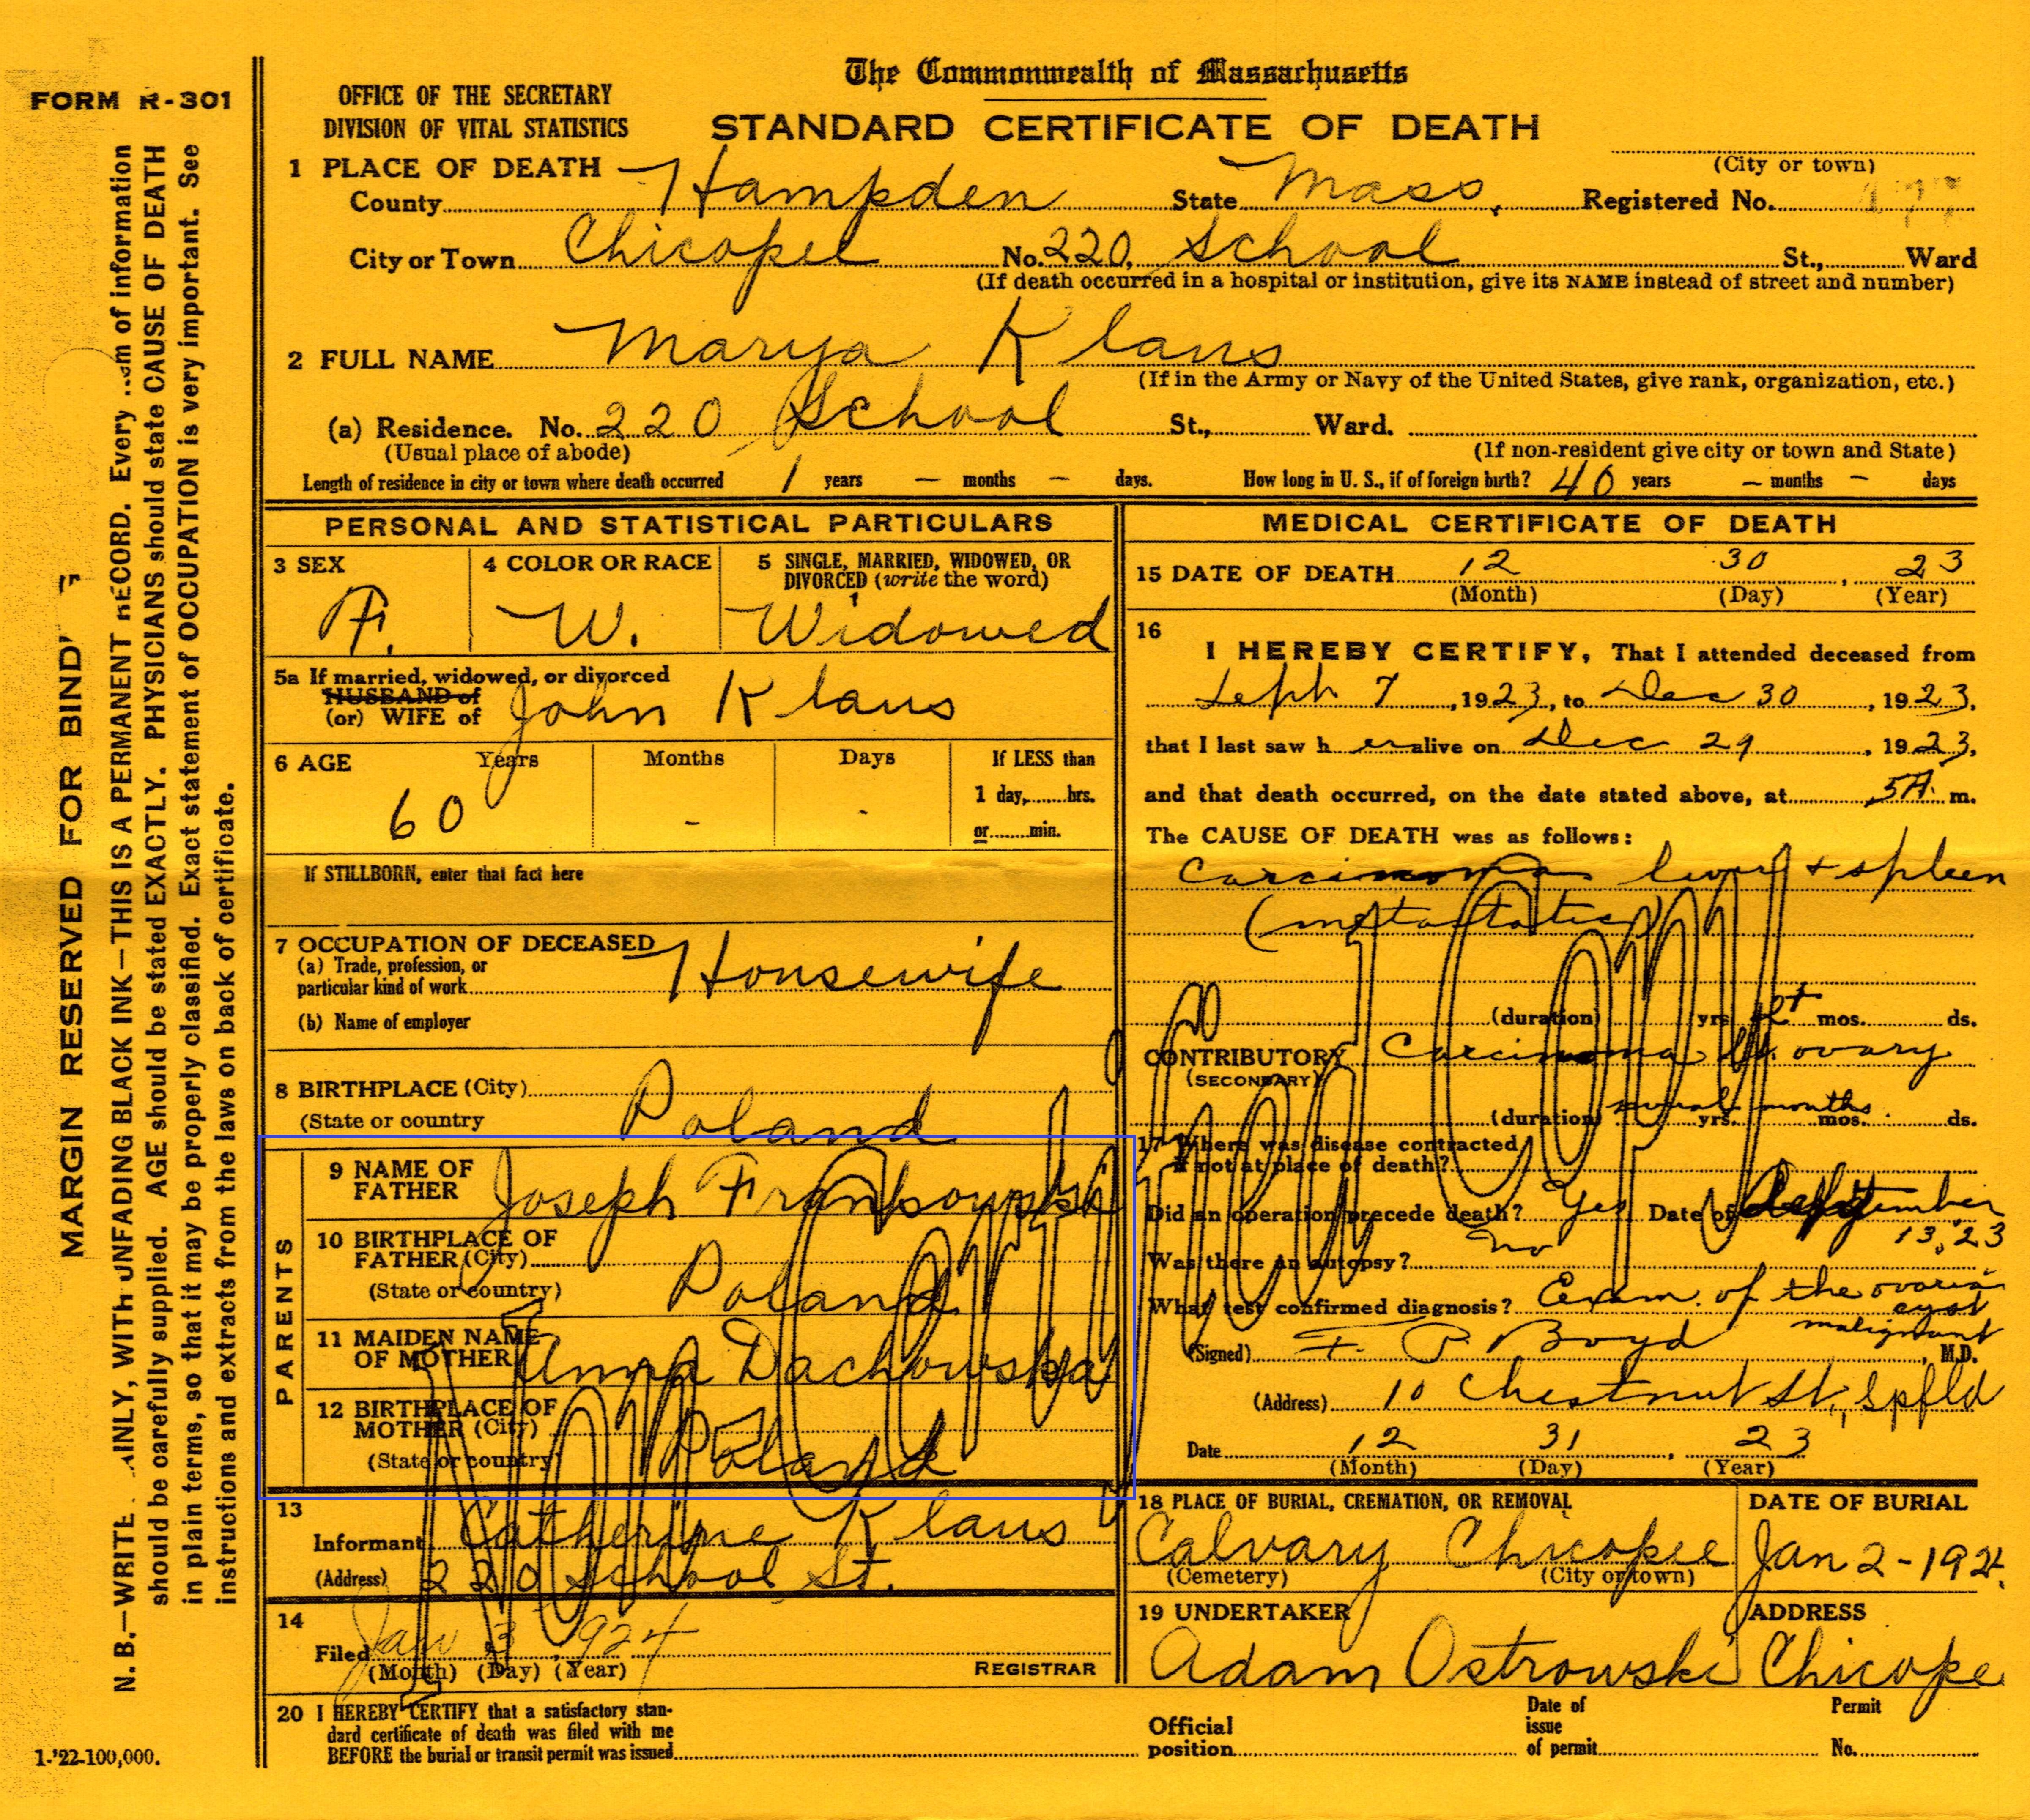 The Commonwealth of Massachusetts
FORM R-301
OFFICE OF THE SECRETARY
DIVISION OF VITAL STATISTICS
STANDARD CERTIFICATE OF DEATH
(City or town)
1 PLACE OF DEATH
County Hampden State Mass. Registered No. 177
City or Town Chicopee No. 220, School St., Ward
(If death occurred in a hospital or institution, give its NAME instead of street and number)
2 FULL NAME Marya Klaus
(If in the Army or Navy of the United States, give rank, organization, etc.)
(a) Residence. No. 220 School St., Ward.
(Usual place of abode) (If non-resident give city or town and State)
Length of residence in city or town where death occurred 1 years - months - days. How long in U. S., if of foreign birth? 40 years - months - days
PERSONAL AND STATISTICAL PARTICULARS
3 SEX F.
4 COLOR OR RACE W.
5 SINGLE, MARRIED, WIDOWED, OR
DIVORCED (write the word)
Widowed
5a If married, widowed, or divorced
HUSBAND of
(or) WIFE of John Klaus
6 AGE Years Months Days If LESS than
60 - - 1 day, hrs.
or min.
If STILLBORN, enter that fact here
7 OCCUPATION OF DECEASED
(a) Trade, profession, or
particular kind of work Housewife
(b) Name of employer
8 BIRTHPLACE (City)
(State or country Poland
PARENTS
9 NAME OF
FATHER Joseph
10 BIRTHPLACE OF
FATHER (City)
(State or country) Poland
11 MAIDEN NAME
OF MOTHER Anna Dachowska
12 BIRTHPLACE OF
MOTHER (City)
(State or country) Poland
13
Informant Catherine Klaus
(Address) 220 School St.
14
Filed Jan 3 1924
(Month) (Day) (Year) REGISTRAR
MEDICAL CERTIFICATE OF DEATH
15 DATE OF DEATH 12 30, 23
(Month) (Day) (Year)
16
I HEREBY CERTIFY, That I attended deceased from
Sept 7, 1923, to Dec 30, 1923,
that I last saw h er alive on Dec 29, 1923,
and that death occurred, on the date stated above, at 5A. m.
The CAUSE OF DEATH was as follows:
Carcinoma liver + spleen
(metastatic)
(duration) yrs. 2+ mos. ds.
CONTRIBUTORY Carcinoma ovary
(SECONDARY)
(duration) several months yrs. mos. ds.
17 Where was disease contracted
if not at place of death?
Did an operation precede death? Yes Date of September
13, '23
Was there an autopsy? no
What test confirmed diagnosis? Exam. of the ovarian
cyst
malignant
(Signed) F. P. Boyd, M.D.
(Address) 10 Chestnut St., Spfld
Date 12 31, 23
(Month) (Day) (Year)
18 PLACE OF BURIAL, CREMATION, OR REMOVAL DATE OF BURIAL
Calvary Chicopee Jan 2-1924
(Cemetery) (City or town)
19 UNDERTAKER ADDRESS
Adam Ostrowski Chicopee
20 I HEREBY CERTIFY that a satisfactory stan-
dard certificate of death was filed with me
BEFORE the burial or transit permit was issued
Official
position
Date of
issue
of permit
Permit
No.
Non Certified Copy
MARGIN RESERVED FOR BIND
N. B.—WRITE AINLY, WITH UNFADING BLACK INK—THIS IS A PERMANENT RECORD. Every item of information
should be carefully supplied. AGE should be stated EXACTLY. PHYSICIANS should state CAUSE OF DEATH
in plain terms, so that it may be properly classified. Exact statement of OCCUPATION is very important. See
instructions and extracts from the laws on back of certificate.
1-'22-100,000.